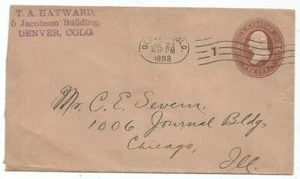 T. A. HAYWARD,
5 Jacobson Building,
DENVER, COLO.
1
1893
Mr. C. E. Severn,
1006 Journal Bldg
Chicago,
Ill.